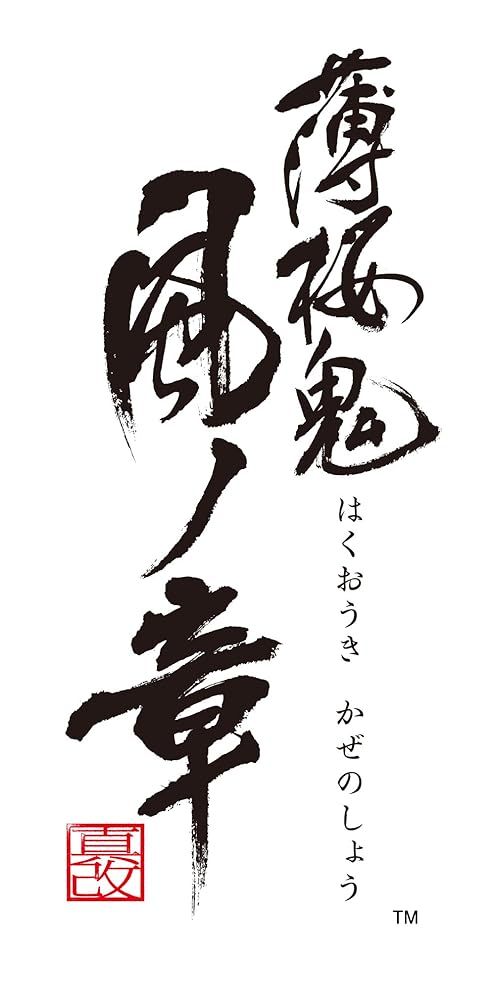 薄桜鬼
はくおうき　かぜのしょう
風ノ章
真改
TM